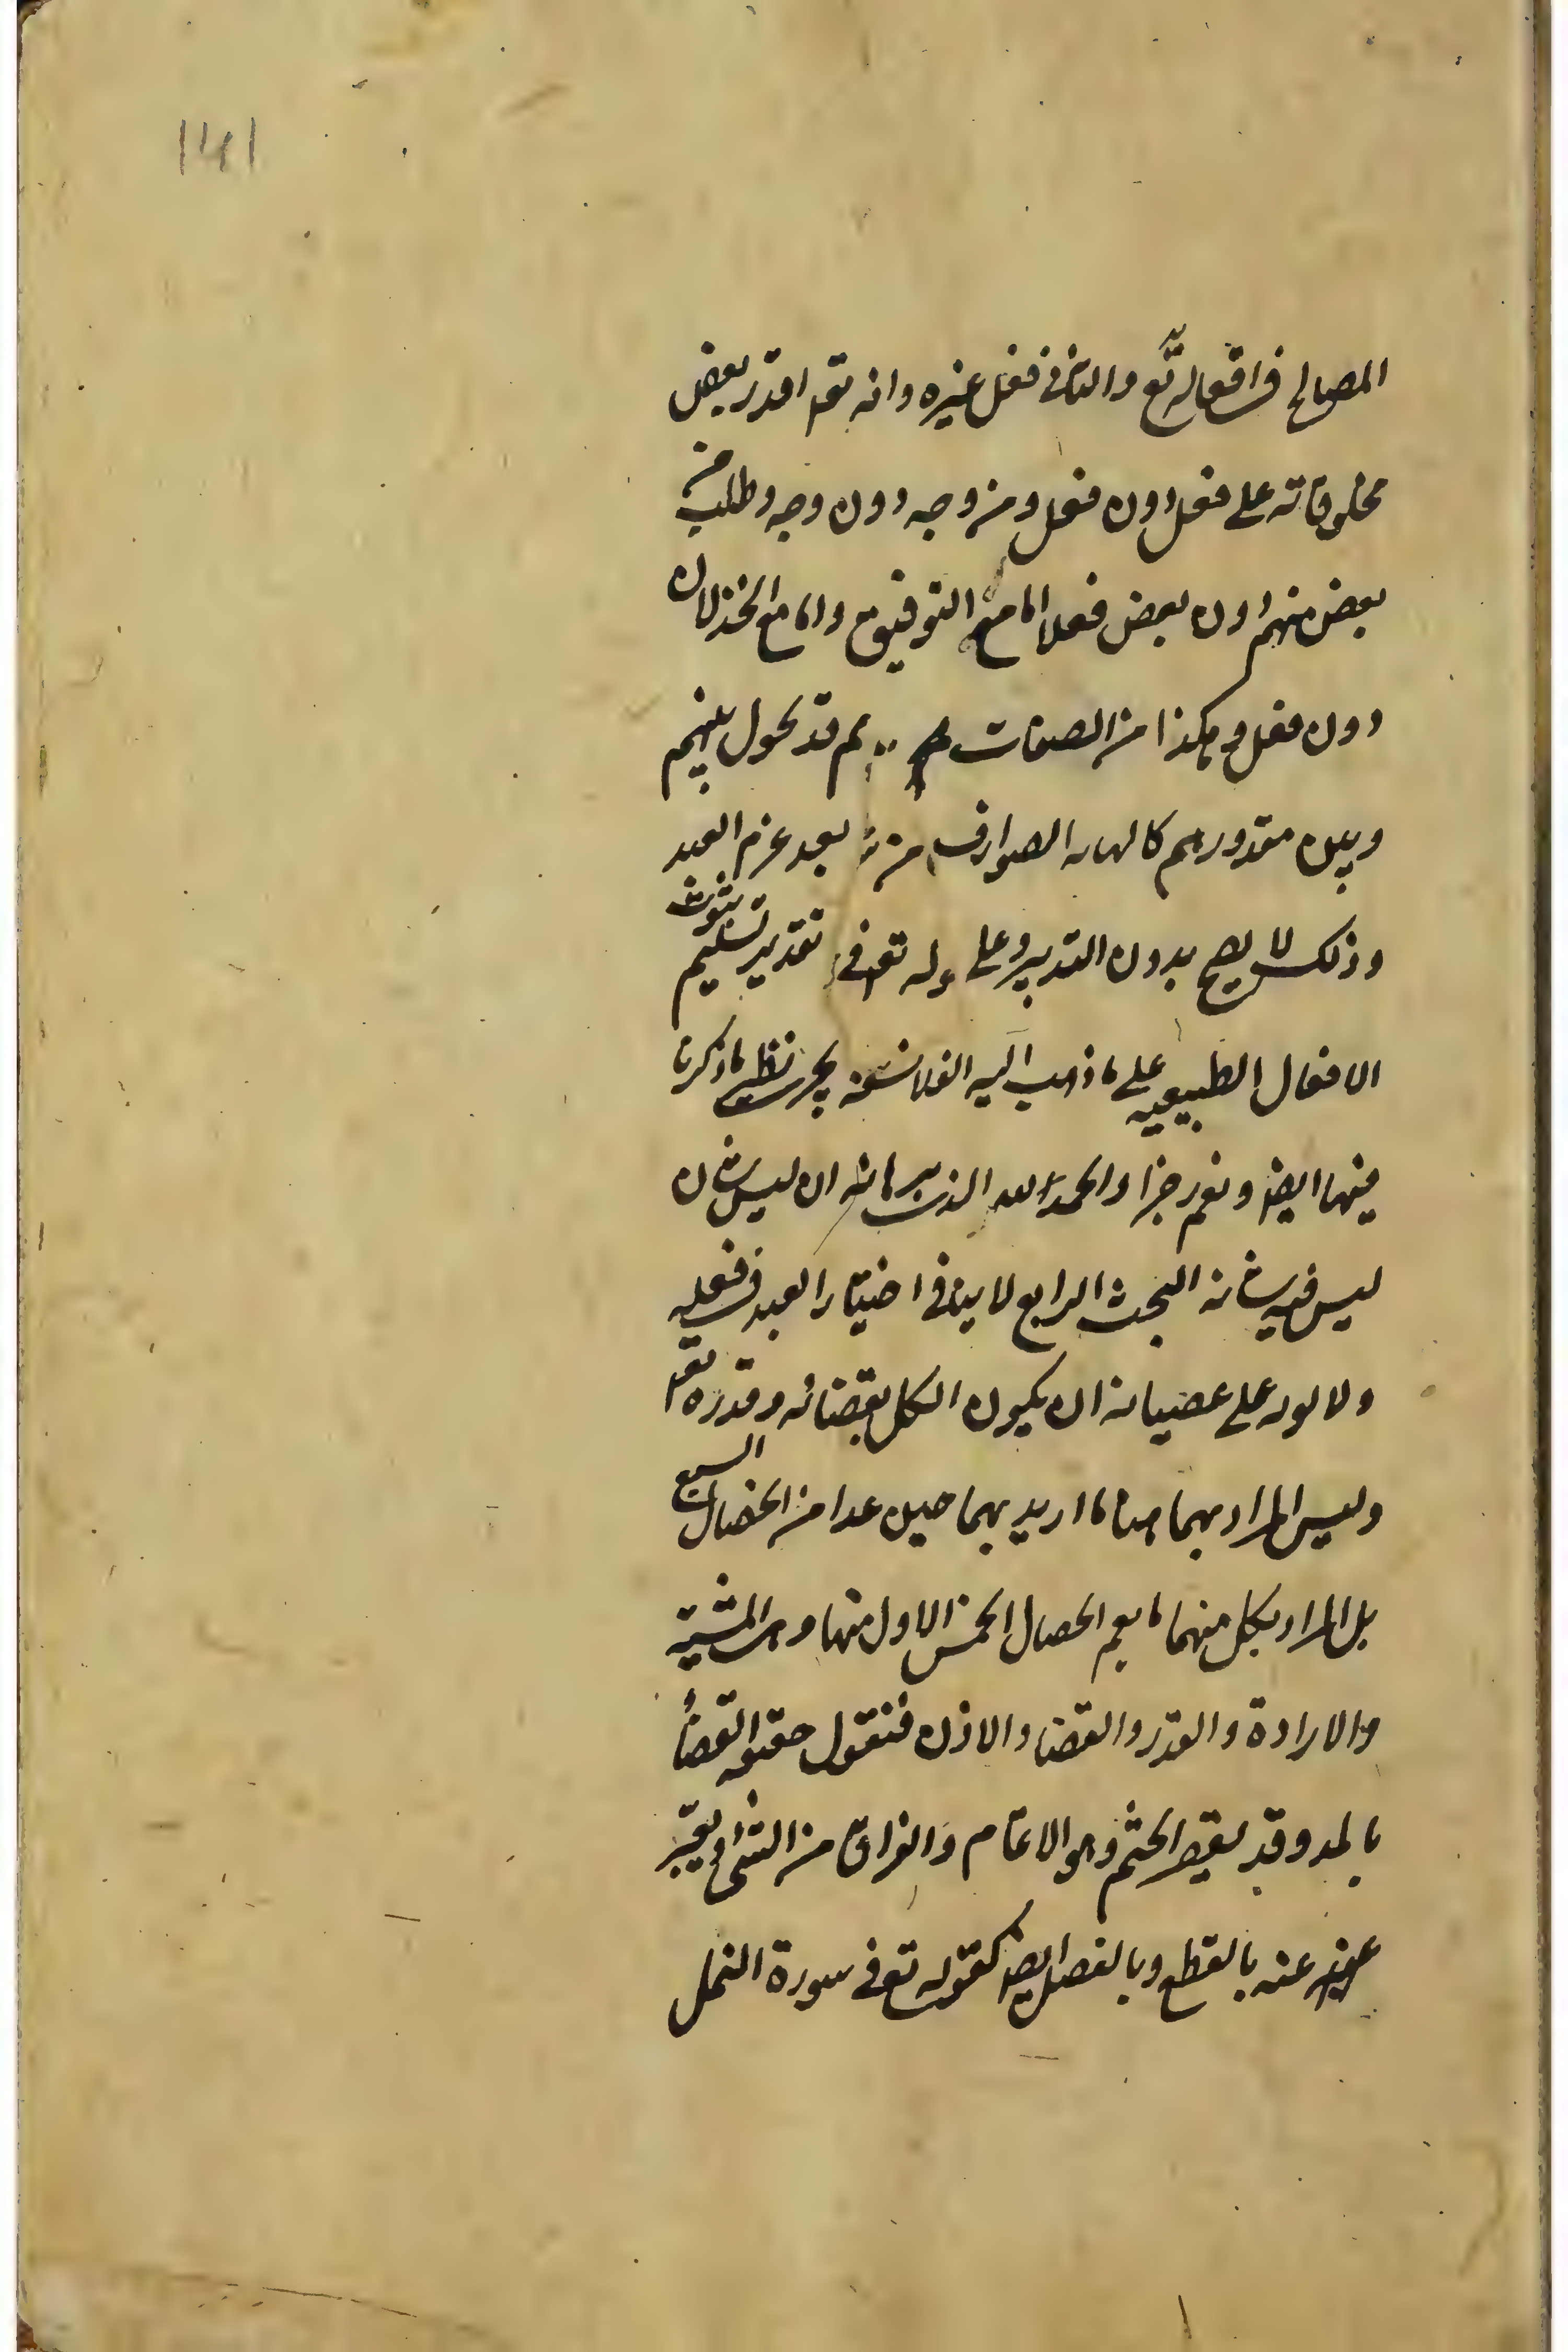 ۱۴۱
المصالح فى افعاله تع والثانى فى فعل غيره وانه تعه اقدر بعض
مخلوقاته على فعل دون فعل ومن وجه دون وجه وطلب من
بعض منهم دون بعض فعلا اما مع التوفيق واما مع الخذلان
دون فعل وهكذا من الصفات ثم قد يحول بينهم
وبين مقدورهم الصوارف بعد عزم العبد
وذلك لا يصح بدون التدبير وعلى تقدير تسليم ثبوت
الافعال الطبيعيه على ما ذهب اليه الفلاسفة يجرى نظير ما ذكرنا
فيها ايضا والحمد لله الذى ان ليس شان
ليس فيه شانه البحث الرابع لا ينافى اختيار العبد فى فعله
ولا لومه على عصيانه ان يكون الكل بقضائه وقدره تعه
وليس المراد بهما هنا ما اريد بهما حين عدا من الخصال السبع
بل المراد بكل منهما ما يعم الخصال الخمس الاول منها وهى المشية
والارادة والقدر والقضاء والاذن فنقول حقيقه القضاء
بالمد وقد يقصر الحتم وهو الاتمام والفراق من الشى ويعبر
عنه بالقطع وبالفصل ايضا كقوله تع فى سورة النمل